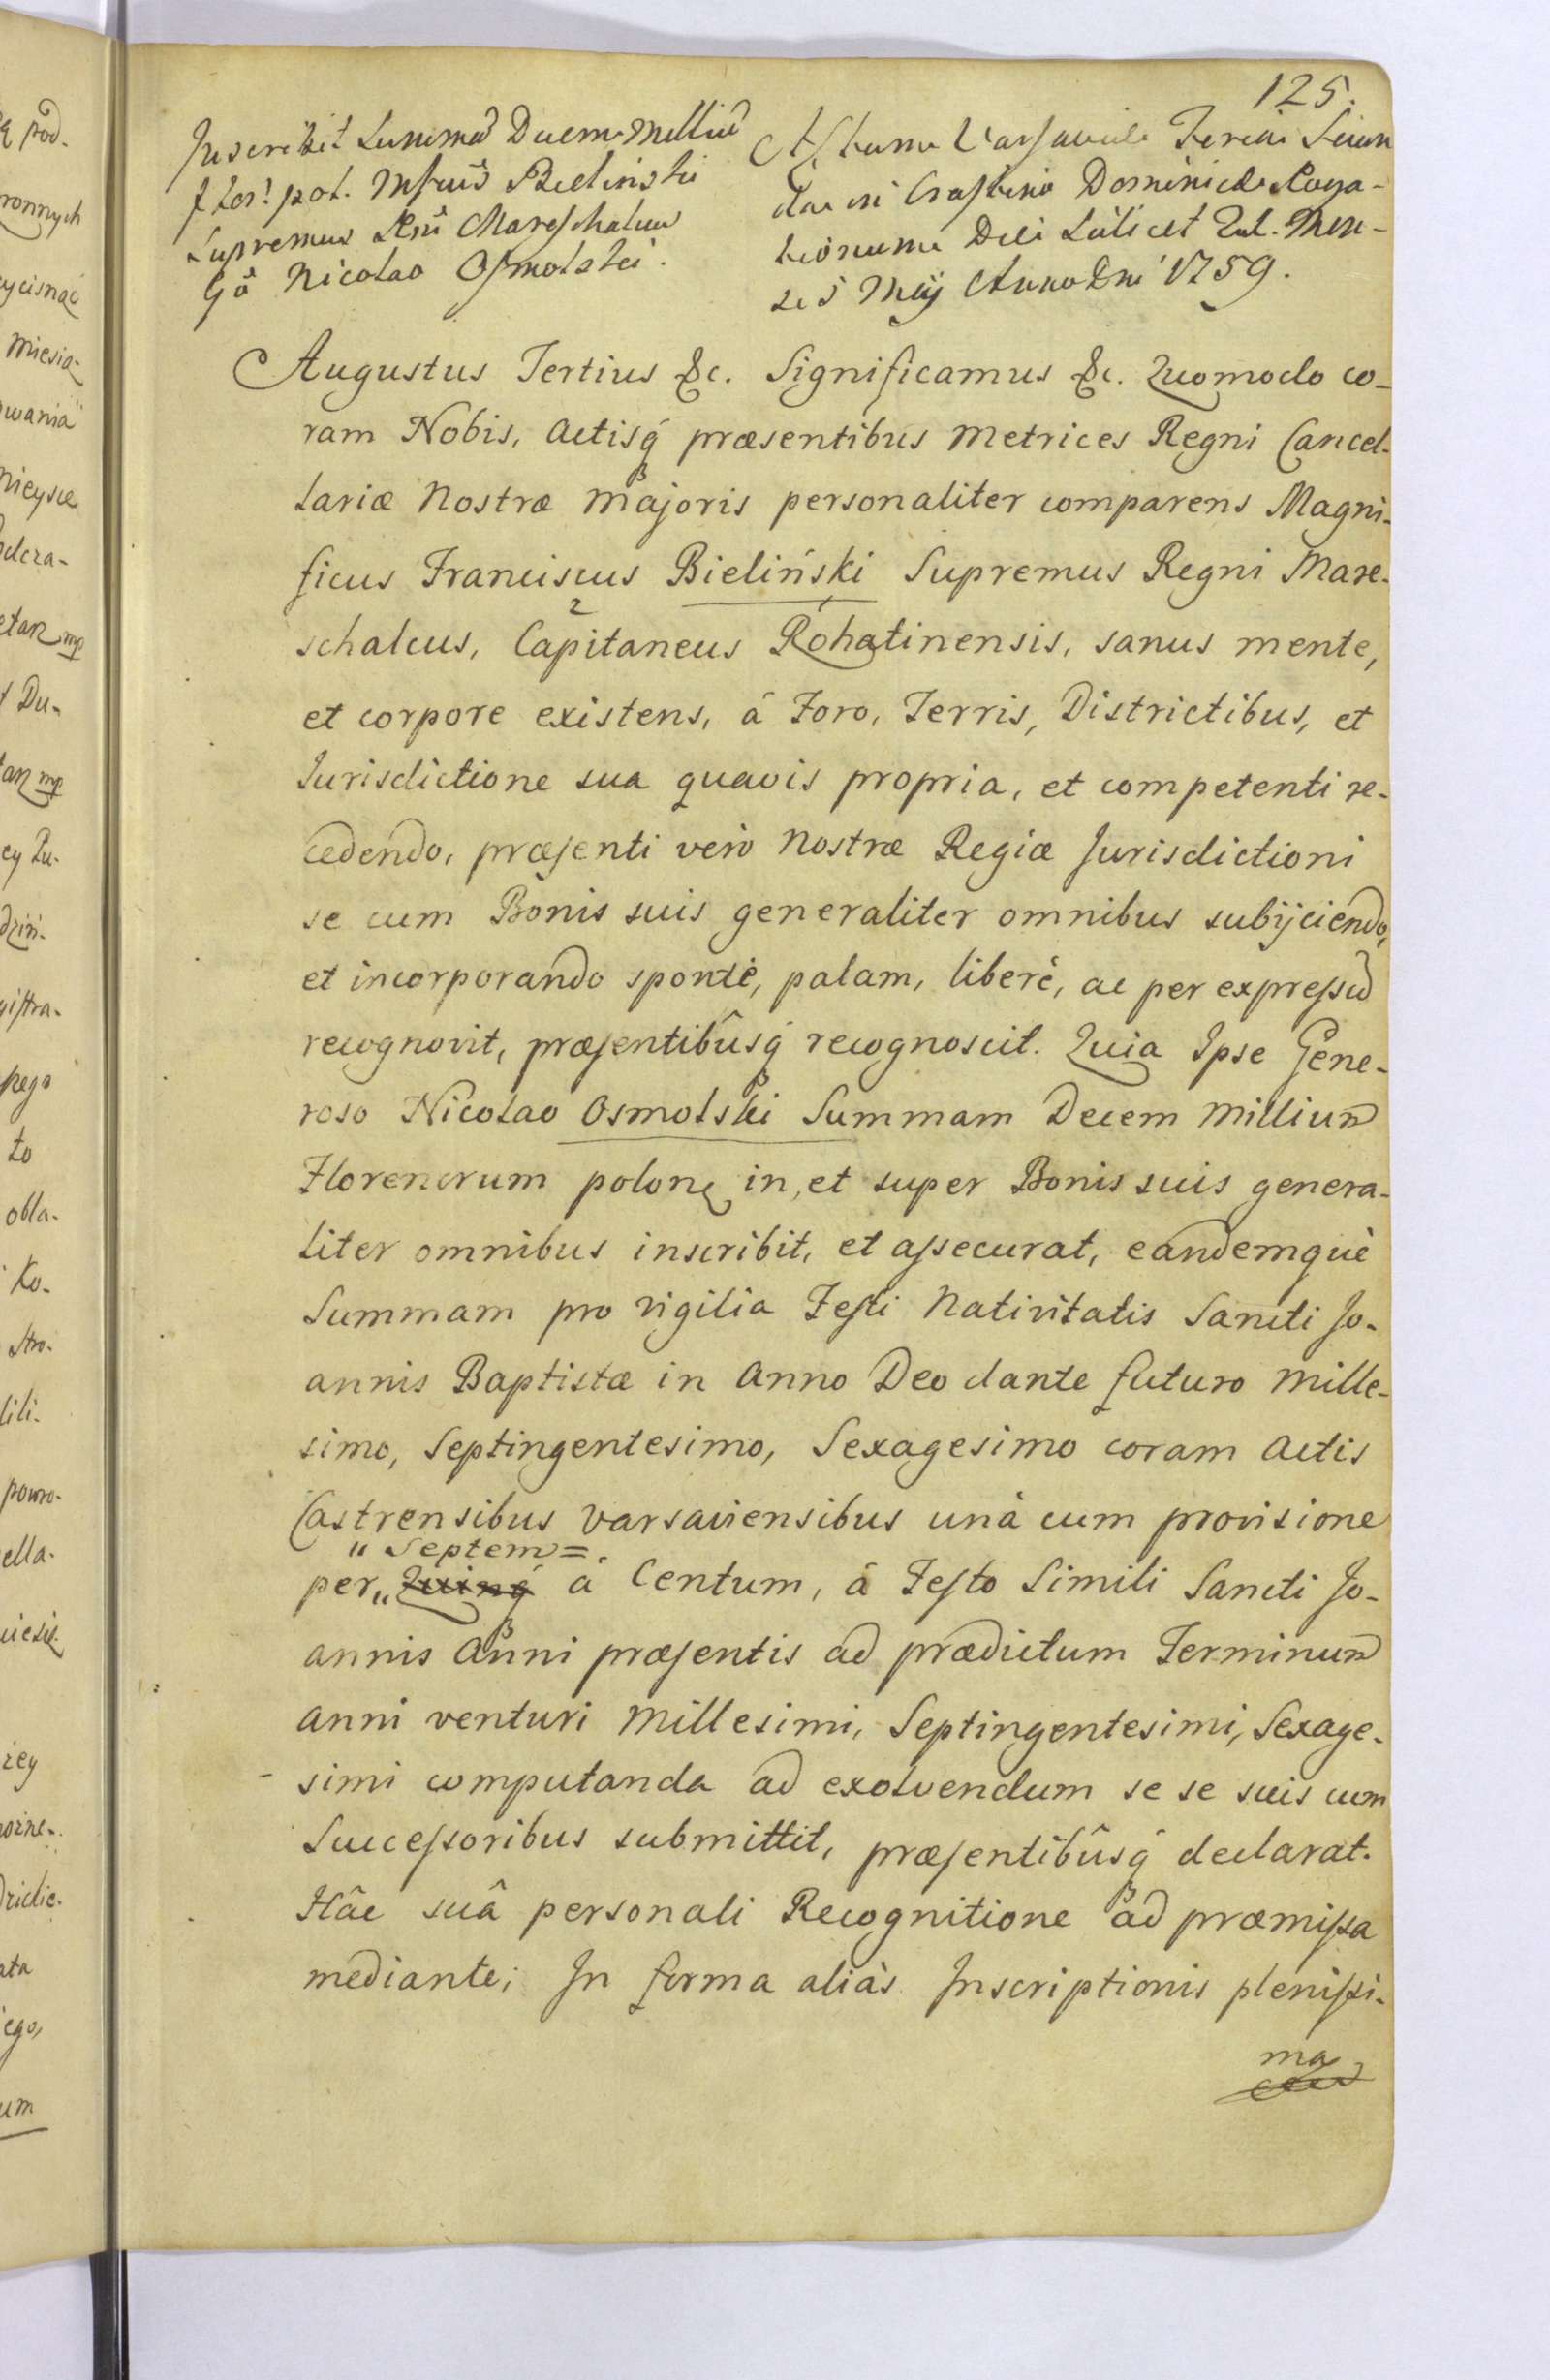 125.
Inscribit Summã Decem Milliũ
flor: pol. Mfcus Bielinski
Supremus Rñi Mareschalcus
Gõ Nicolao Osmolski.
Actum Varsaviæ Feria Secun
da in Crastino Dominicæ Roga-
tionum Die Scilicet 21. Men-
sis Maij Anno Dni 1759.
Augustus Tertius &c. Significamus &c. Quomodo co-
ram Nobis, Actisq́ præsentibus Metrices Regni Cancel-
lariæ Nostræ Majoris personaliter comparens Magni-
ficus Franciscus Bieliński Supremus Regni Mare-
schalcus, Capitaneus Rohatinensis, sanus mente,
et corpore existens, á Foro, Terris, Districtibus, et
Jurisdictione sua quavis propria, et competenti re-
cedendo, præsenti verò Nostræ Regiæ Jurisdictioni
se cum Bonis suis generaliter omnibus subijciendo,
et incorporando spontè, palam, liberè, ac per expressũ
recognovit, præsentibûsq́ recognoscit. Quia Ipse Gene-
roso Nicolao Osmolski Summam Decem Milliũ
Florenorum polon in, et super Bonis suis genera-
liter omnibus inscribit, et assecurat, eandemquè
Summam pro vigilia Festi Nativitatis Sancti Jo-
annis Baptistæ in Anno Deo dante futuro Mille-
simo, Septingentesimo, Sexagesimo coram Actis
Castrensibus Varsaviensibus unà cum provisione
" Septem =
per „ Quinq́ á Centum, á Festo Simili Sancti Jo-
annis Anni præsentis ad prædictum Terminum
Anni venturi Millesimi, Septingentesimi, Sexage-
simi computanda ad exolvendum se se suis cum
Successoribus submittit, præsentibûsq́ declarat.
Hâc suâ personali Recognitione ad præmissa
mediante; In forma aliàs Inscriptionis plenissi-
ma